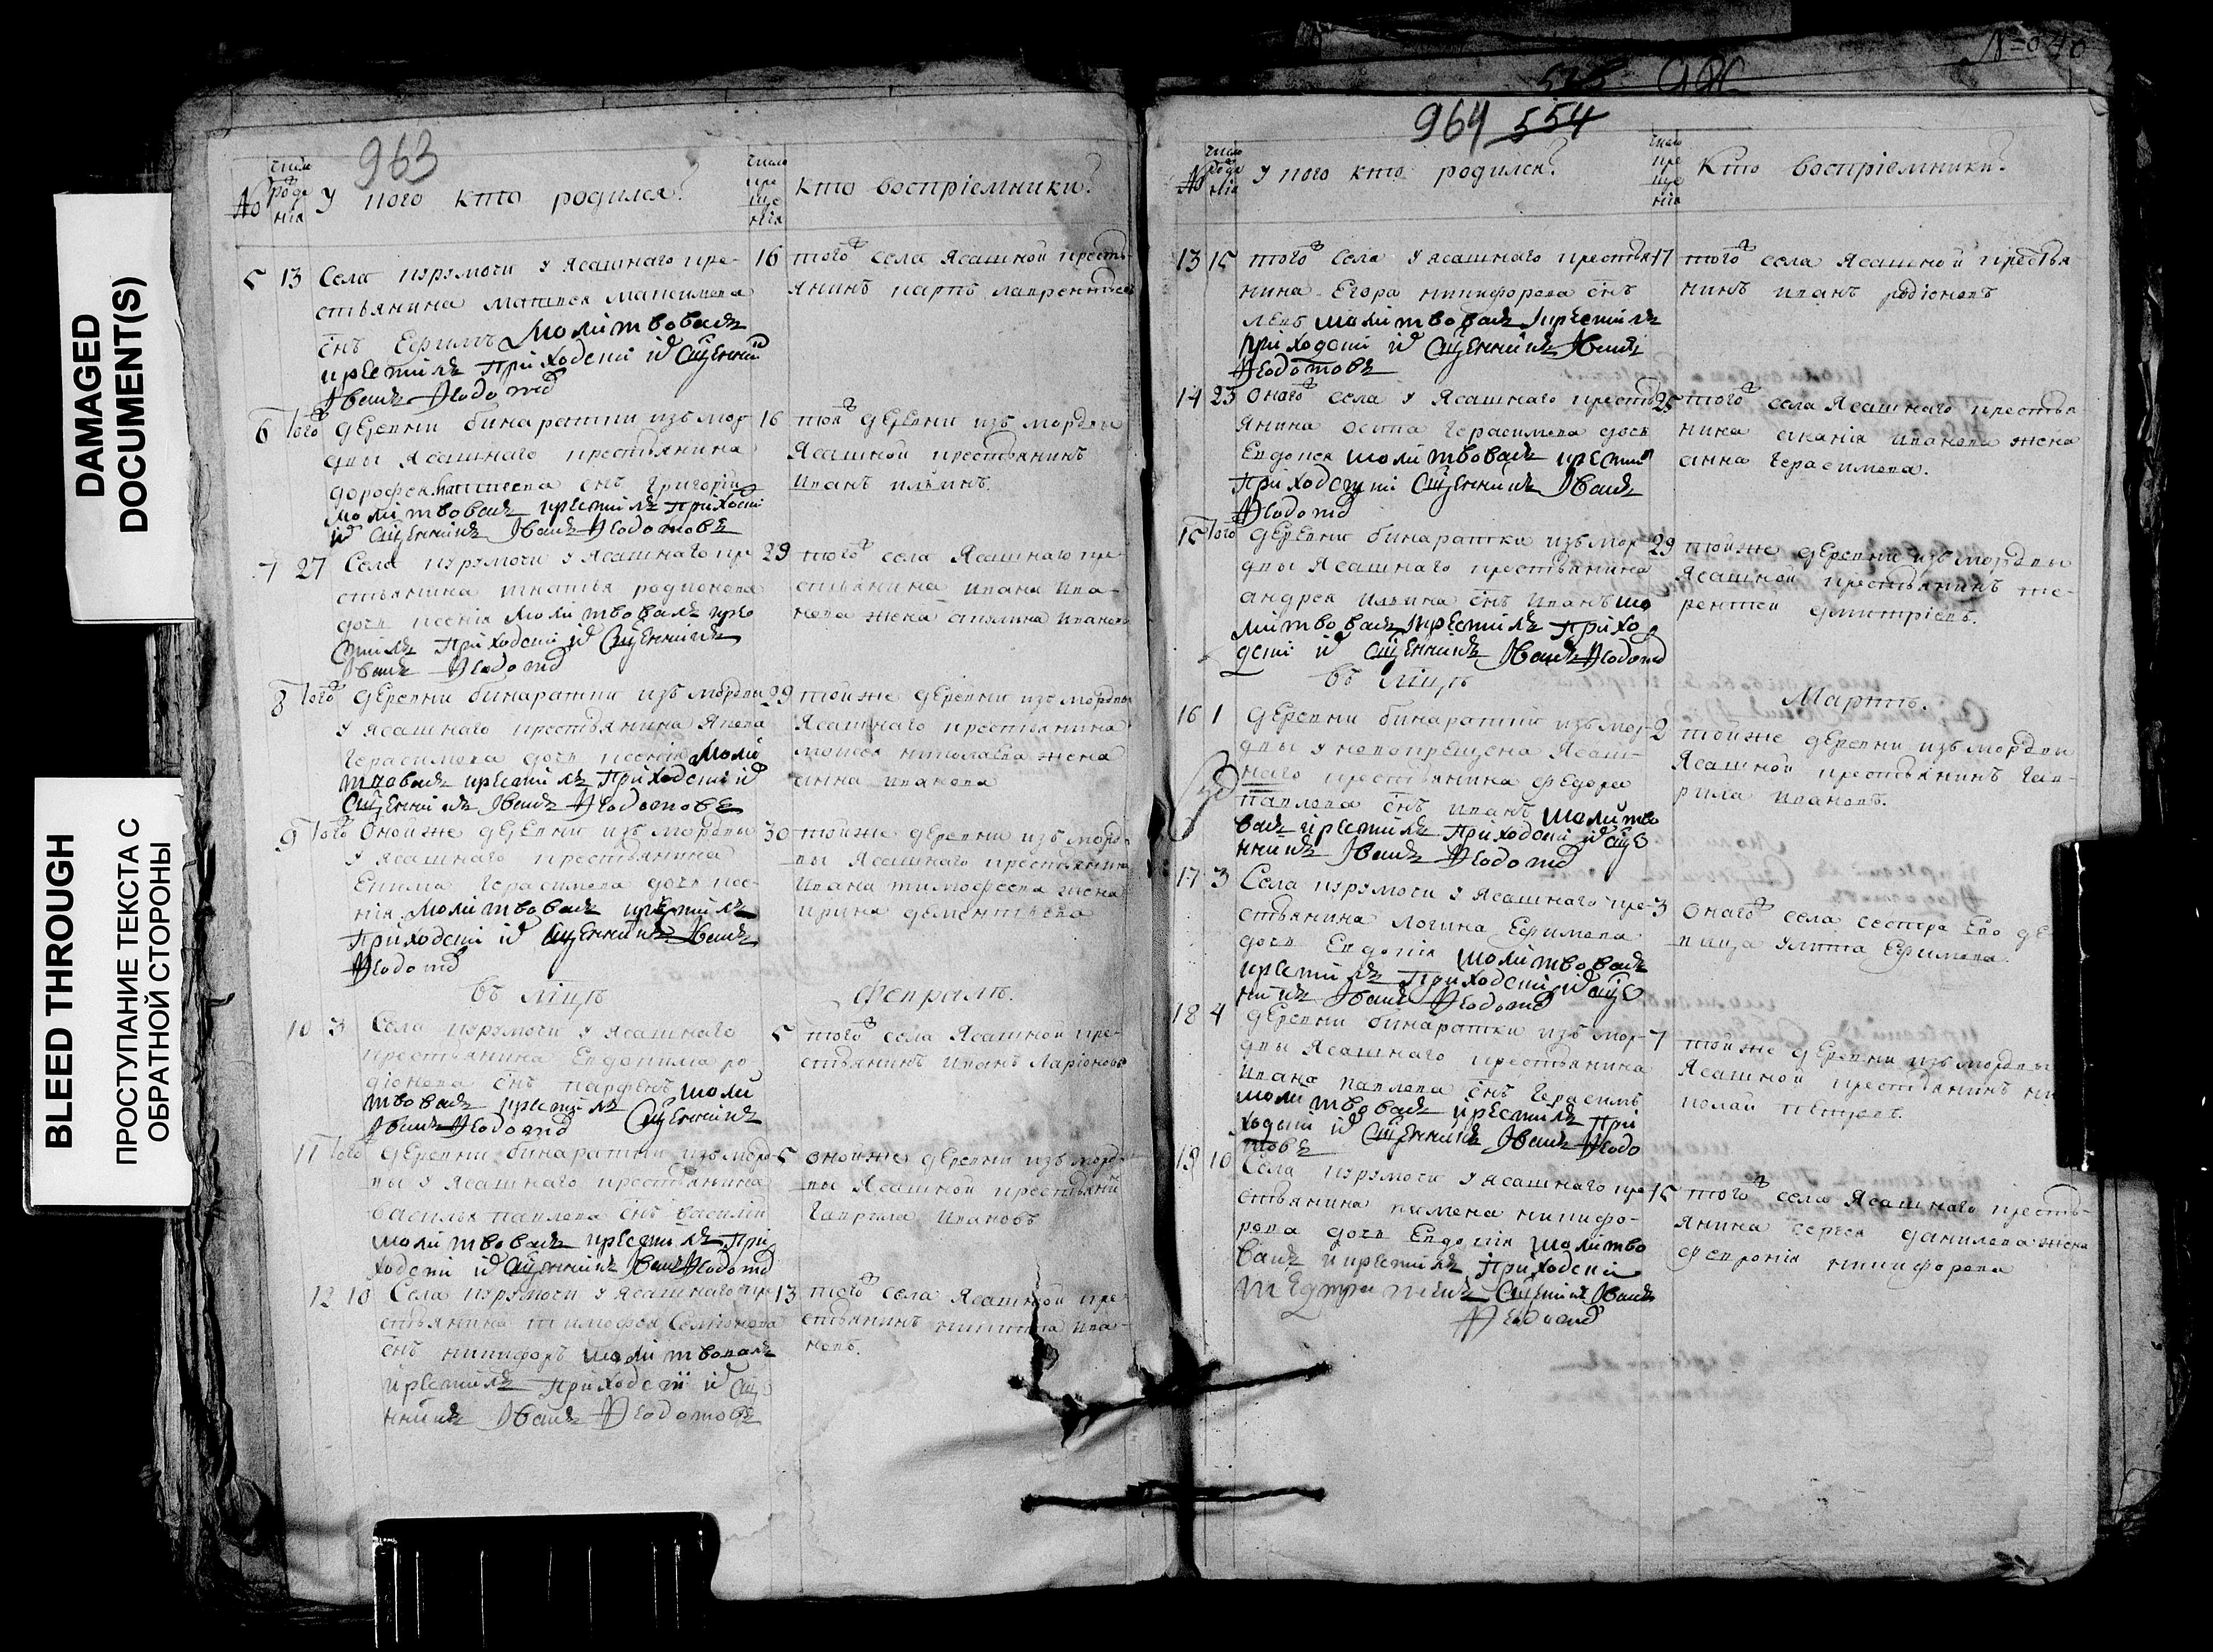 DAMAGED
DOCUMENT(S)
BLEED THROUGH
ПРОСТУПАНИЕ ТЕКСТА С
ОБРАТНОЙ СТОРОНЫ
963
№
число рожде нія
У кого кто родился?
число кре ще нія
Кто воспріемники?
5 13 Села курумочи у ясашнаго кре-
стьянина матвея максимова
снъ Ефимъ Молитвовалъ
и крестилъ приходскій священникъ
Иванъ Ѳедотов
16 того села Ясашной кресть
янинъ карпъ лаврентьев
6 того деревни бинаратки изъ мор
двы ясашнаго крестьянина
дорофея снъ григорій
молитвовалъ крестилъ приходскій
священникъ Иванъ Ѳедотовъ
16 той деревни изъ мордвы
Ясашной крестьянинъ
Иванъ ильинъ.
7 27 Села курумочи у ясашнаго кре
стьянина игнатья родионова
дочь ксенія молитвовалъ кре
стилъ приходскій священникъ
Иванъ Ѳедотов
29 того села Ясашнаго кре
стьянина ивана ива-
нова жена акилина иванова
8 того деревни бинаратки изъ мордвы
у ясашнаго крестьянина якова
герасимова дочь ксенія моли
твовалъ крестилъ приходскій
священникъ Иванъ Ѳедотовъ
29 тойже деревни изъ мордвы
Ясашнаго крестьянина
моисея николаева жена
анна иванова
9 того Онойже деревни изъ мордвы
у ясашнаго крестьянина
Екима герасимова дочь ксе-
нія молитвовалъ крестилъ
приходскій священникъ Иванъ
Ѳедотов
30 тойже деревни изъ морд-
вы Ясашнаго крестьянина
Ивана тимофеева жена
ирина дементьева
въ мцѣ Февралѣ.
10 3 Села курумочи у ясашнаго
крестьянина Евдокима ро-
діонова снъ парфенъ моли
твовалъ крестилъ священникъ
Иванъ Ѳедотов
5 того села Ясашной кре-
стьянинъ иванъ Ларіоновъ
11 того деревни бинаратки изъ морд-
вы у ясашнаго крестьянина
василья павлова снъ василій
молитвовалъ крестилъ при
ходскій священникъ Иванъ Ѳедотов
5 онойже деревни изъ морд-
вы Ясашной крестьянин
Гаврила Ивановъ
12 10 Села курумочи у ясашнаго кре
стьянина тимофея Семіонова
снъ никифоръ молитвовалъ
и крестилъ приходскій свяще
нникъ Иванъ Ѳедотовъ
13 того села Ясашной кре-
стьянинъ никита ива-
новъ.
964 554
№
число рожде нія
У кого кто родился?
число кре ще нія
Кто воспріемники?
13 15 того села у ясашнаго крестья
нина Егора никифорова снъ
левъ молитвовалъ и крестилъ
приходскій священникъ Иванъ
Ѳедотовъ
17 того села Ясашной крестья
нинъ иванъ родіоновъ
14 23 Онаго села у ясашнаго кресть
янина осипа герасимова дочь
Евдокея молитвовалъ крестилъ
приходскій священникъ Иванъ
Ѳедотов
25 того села Ясашнаго крестья
нина иванова жена
анна герасимова.
15 того деревни бинаратки изъ мор-
двы Ясашнаго крестьянина
андрея ильина снъ иванъ мо
литвовалъ и крестилъ прихо
дскій священникъ Иванъ Ѳедотов
29 тойже деревни изъ мордвы
Ясашной крестьянинъ те-
рентей дмитріевъ.
въ мцѣ Мартѣ.
16 1 деревни бинаратки изъ мор-
двы у новокрещена Ясаш-
наго крестьянина федора
павлова снъ иванъ молитво
валъ крестилъ приходскій свяще
нникъ Иванъ Ѳедотов
2 тойже деревни изъ мордвы
Ясашной крестьянинъ гав-
рила ивановъ.
17 3 Села курумочи у ясашнаго кре-
стьянина логина Ефимова
дочь Евдокія молитвовалъ
крестилъ приходскій свяще
нникъ Иванъ Ѳедотов
3 Онаго села сестра Ево де-
вица улита Ефимова
18 4 деревни бинаратки изъ мор-
двы Ясашнаго крестьянина
Ивана павлова снъ герасимъ
молитвовалъ крестилъ при
ходскій священникъ Иванъ Ѳедо
товъ
7 тойже деревни изъ мордвы
Ясашной крестьянинъ ни
колай петровъ.
19 10 Села курумочи у ясашнаго кре
стьянина пимена никифо-
рова дочь Евдокія молитво
валъ и крестилъ приходскій
священникъ Иванъ
Ѳедотов
15 того села Ясашнаго кресть-
янина сергея данилова жена
февронія никифорова